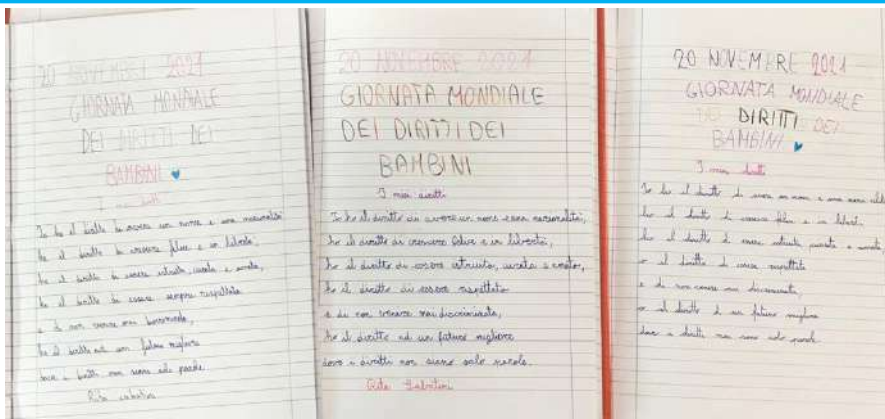 20 NOVEMBRE 2021
GIORNATA MONDIALE
DEI DIRITTI DEI
BAMBINI
I miei diritti
Io ho il diritto di avere un nome e una nazionalità
ho il diritto di crescere felice e in libertà,
ho il diritto di essere istruito, curata e amata,
ho il diritto di essere sempre rispettata
e di non venire mai
ho il diritto ad un futuro migliore
dove i diritti non siano solo parole.
Rita Sabatini
20 NOVEMBRE 2021
GIORNATA MONDIALE
DEI DIRITTI DEI
BAMBINI
I miei diritti
Io ho il diritto di avere un nome e una nazionalità,
ho il diritto di crescere felice e in libertà,
ho il diritto di essere istruito, curato e amato,
ho il diritto di essere rispettato
e di non venire mai discriminato,
ho il diritto ad un futuro migliore
dove i diritti non siano solo parole.
Rita Sabatini
20 NOVEMBRE 2021
GIORNATA MONDIALE
DIRITTI DEI
BAMBINI
I miei diritti
Io ho il diritto di avere un nome e una
ho il diritto di crescere felice e in libertà,
ho il diritto di essere istruita, curata e amata,
o il diritto di essere rispettata
e di non essere mai discriminata,
o il diritto di un futuro migliore
dove i diritti non sono solo parole